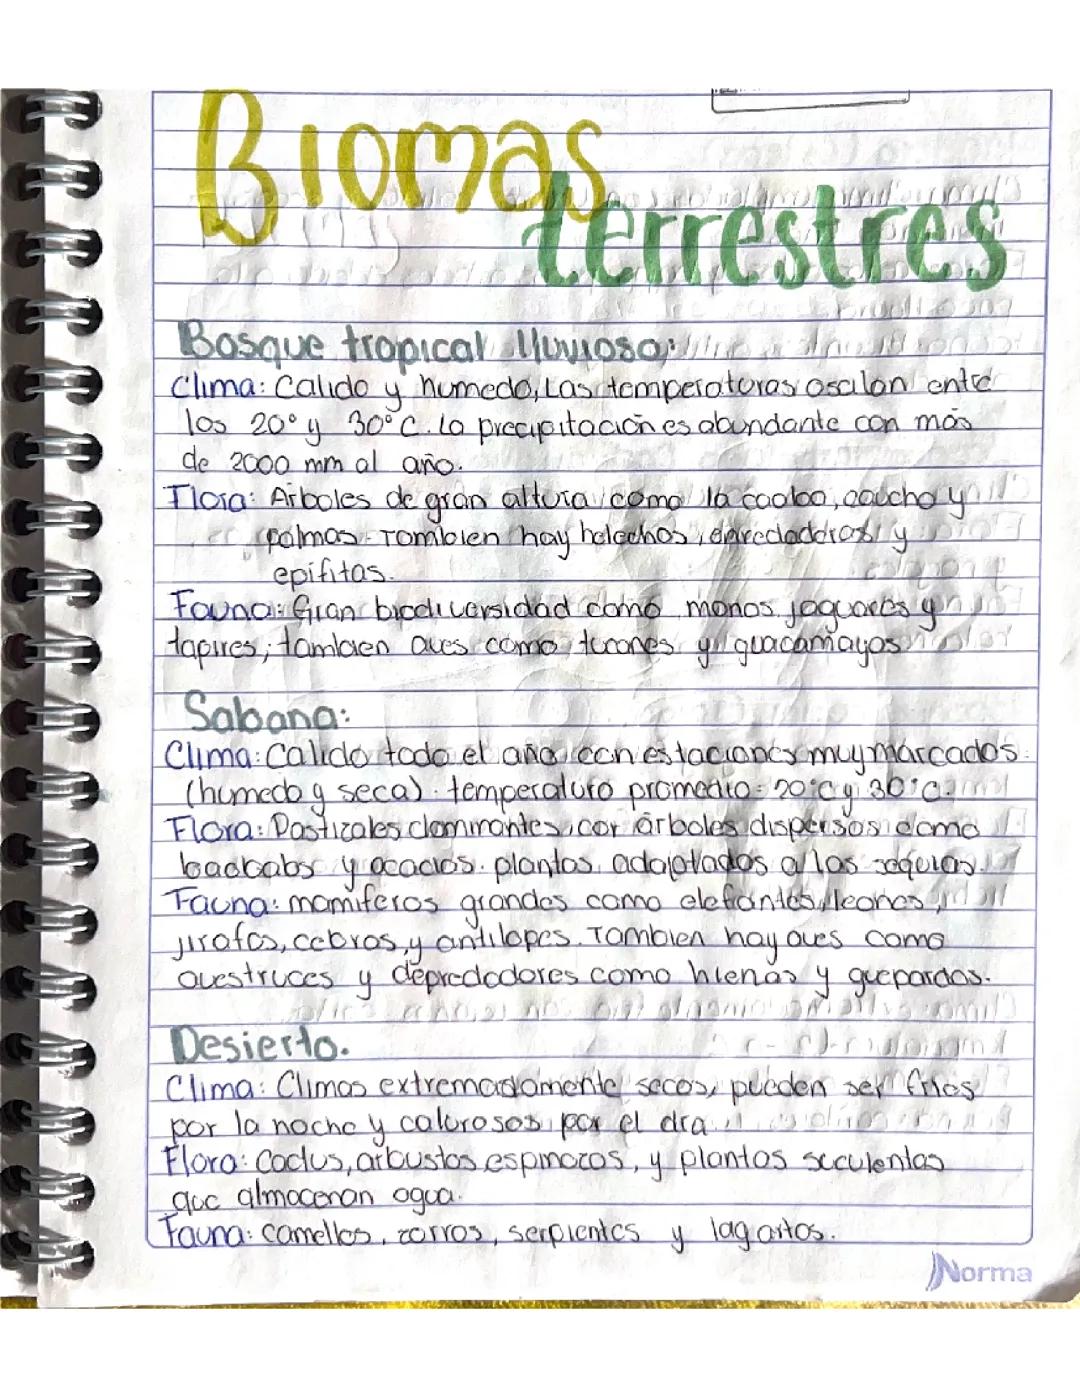 Biomas
terrestres
Bosque tropical lluvioso:
Clima: Calido y humedo, Las temperaturas oscilan entre
los 20° y 30°C. la precipitación es abundante con más
de 2000 mm al año.
Flora: Árboles de gran altura como la caoba, caucho y
palmas. También hay helechos, enredaderas y
epifitas.
Fauna: Gran biodiversidad como monos jaguares y
tapires; tambien aves como tucanes y guacamayos
Sabana:
Clima: Calido todo el año con estaciones muy marcadas
(humeda y seca). temperatura promedio: 20°c y 30°c.
Flora: Pastizales dominantes, con árboles dispersos como
baobabs y acacias. plantas adaptadas a las sequias.
Fauna: mamiferos grandes como elefantes, leones,
jirafas, cebras, y antilopes. También hay aves como
avestruces y depredadores como hienas y guepardos.
Desierto.
Clima: Climas extremadamente secos, pueden ser frios
por la noche y calurosos por el dia.
Flora: Cactus, arbustos espinozos, y plantas suculentas
que almacenan agua.
Fauna: camellos, zorros, serpientes y lagartos.
Norma